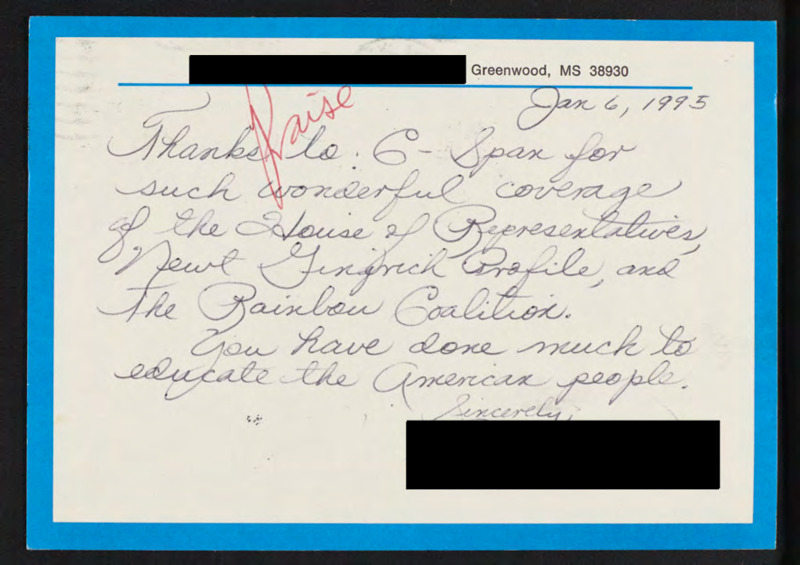 Greenwood, MS 38930
Jan 6, 1995
Praise
Thanks to C-Span for
such wonderful coverage
of the House of Representatives,
Newt Gingrich Profile, and
the Rainbow Coalition.
You have done much to
educate the American people.
Sincerely,